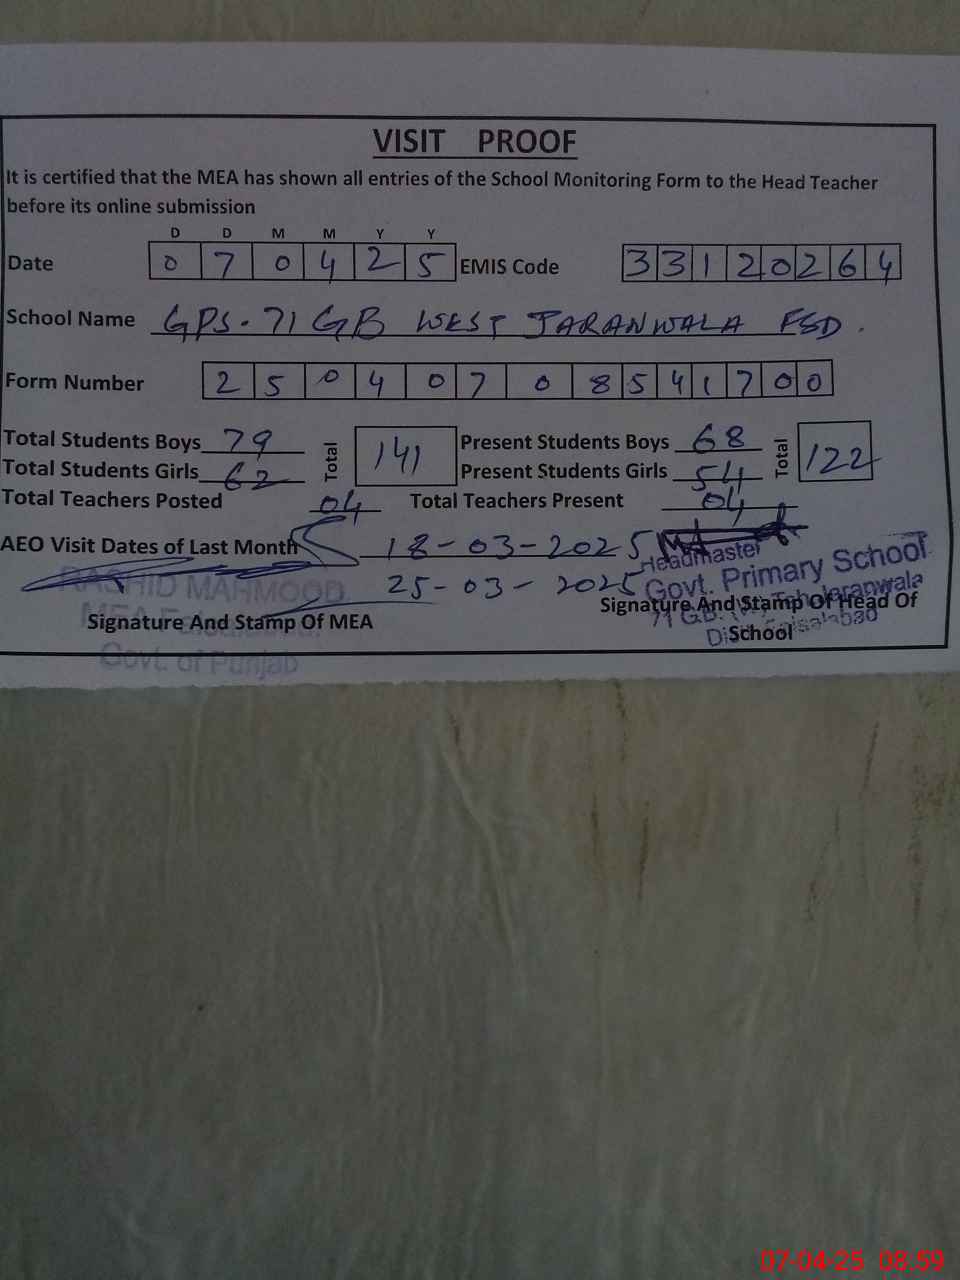 VISIT PROOF
It is certified that the MEA has shown all entries of the School Monitoring Form to the Head Teacher
before its online submission
D D M M Y Y
Date 0 7 0 4 2 5 EMIS Code 3 3 1 2 0 2 6 4
School Name GPS. 71 GB WEST JARANWALA FSD.
Form Number 2 5 0 4 0 7 0 8 5 4 1 7 0 0
Total Students Boys 79 Total 141 Present Students Boys 68 Total 122
Total Students Girls 62 Present Students Girls 54
Total Teachers Posted 04 Total Teachers Present 04
AEO Visit Dates of Last Month 18-03-2025
25-03-2025
Headmaster
Govt. Primary School
71 G.B. (W) Teh: Jaranwala
Distt. Faisalabad
RASHID MAHMOOD
MEA Faisalabad
Govt. of Punjab
Signature And Stamp Of MEA
Signature And Stamp Of Head Of
School
07-04-25 08:59